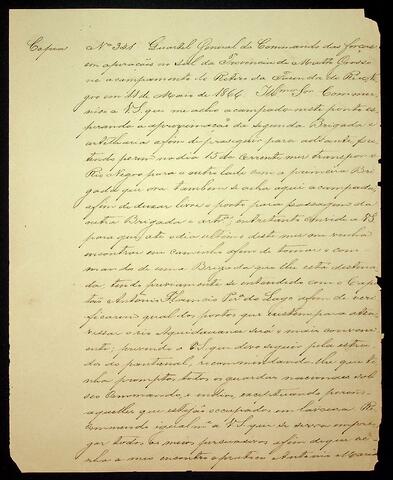 Copia Nº 321 Quartel General do Commando das forças
em operacões no sul da Provincia de Matto Grosso
no acampamento do Retiro da Fazenda do Rio Ne
gro em 11 de Maio de 1866. Illmo Snr Commu
nico a V.S. que me acho acampado neste ponto es
perando a aproximação da segunda Brigada e
artilharia afim de proseguir para adiante, per
tendo porem no dia 15 do corrente mez transpor o
Rio Negro para o outro lado com a primeira Bri
gada que ora tambem se acha aqui acampada,
afim de deixar livre o porto para passagem da
outra Brigada e artra; entretanto convido a V.S.
para que até o dia ultimo deste mez me venha
encontrar em caminho afim de tomar o com
mando de uma Brigada que lhe está destina
da, tendo previamente se entendido com o Capi
tão Antonio Florencio Pra do Lago afim de veri
ficarem qual dos portos que existem para atra
vessar o rio Aquidauana será o mais conveni
ente, prevendo a V.S. que devo seguir pela estra
da do pantanal, recommendando-lhe que te
nha promptos todos os guardas nacionaes sob
seo Commando, e indios, exceptuando porem
aquelles que estejão occupados em lavoura. Re
commendo igualme a V.S. que se sirva empre
gar todos os meios persuasivos afim de que ve
nha a meu encontro o pratico Antonio Maria